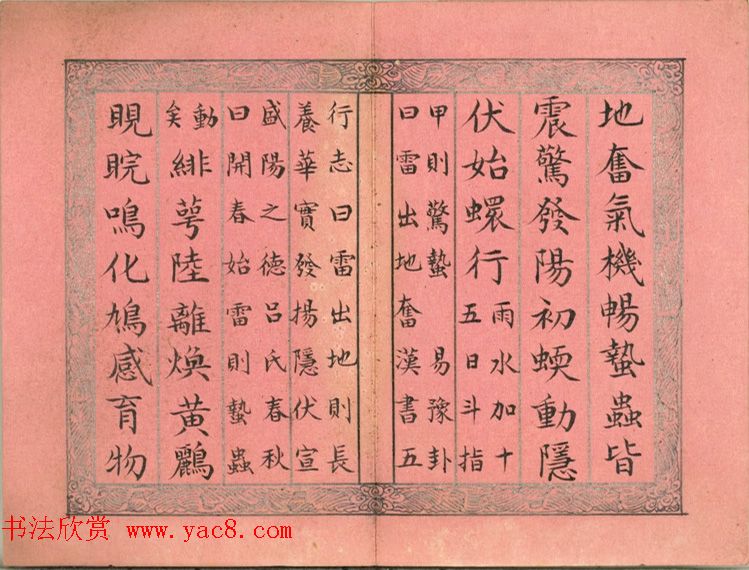 地奮氣機暢蟄蟲皆
震驚發陽初蝡動隱
伏始蠉行雨水加十
五日斗指
甲則驚蟄 易豫卦
曰雷出地奮漢書五
行志曰雷出地則長
養華實發揚隱伏宣
盛陽之德呂氏春秋
曰開春始雷則蟄蟲
動
矣
緋萼陸離煥黃鸝
睍睆鳴化鳩感育物
书法欣赏 www.yac8.com